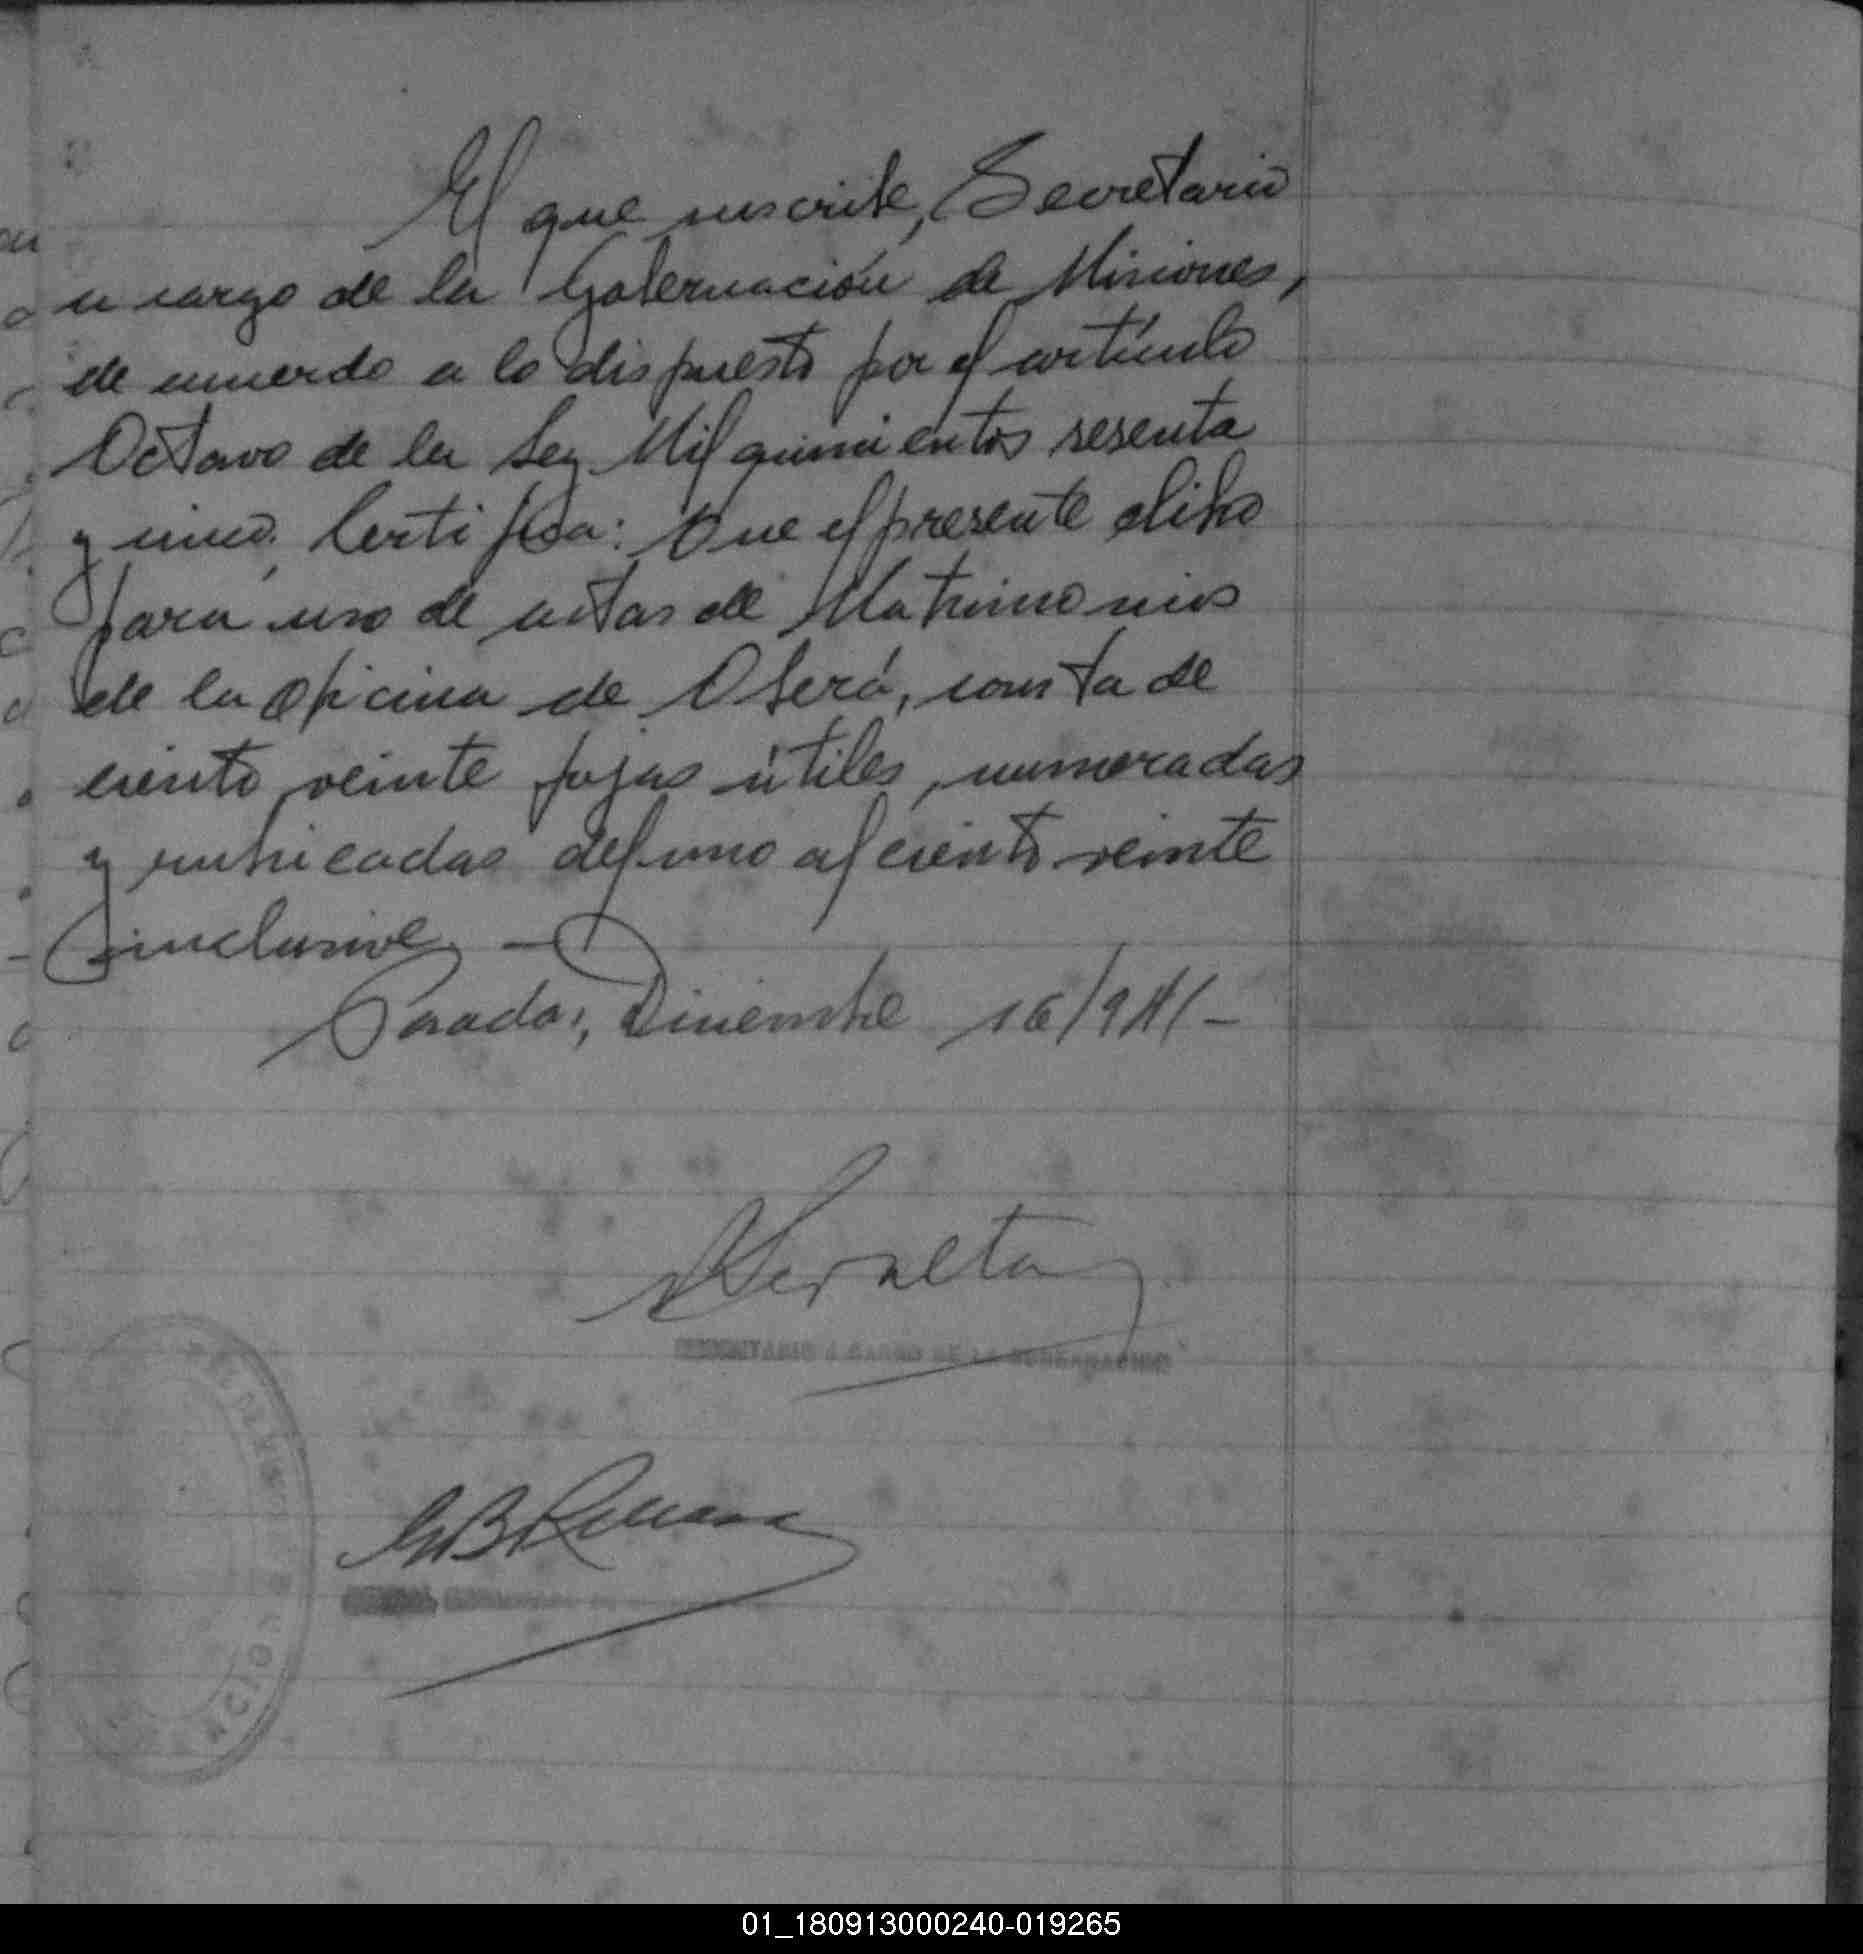 El que suscribe, Secretario
a cargo de la Gobernación de Misiones,
de acuerdo a lo dispuesto por el artículo
Octavo de la Ley Mil quinientos sesenta
y cinco, Certifica: Que el presente libro
para uso de actas de Matrimonios
de la Oficina de Oberá, consta de
ciento veinte fojas útiles, numeradas
y rubricadas del uno al ciento veinte
inclusive, -
Posadas, Diciembre 16/941/-
Peralta
SECRETARIO A CARGO DE LA GOBERNACION
01_180913000240-019265